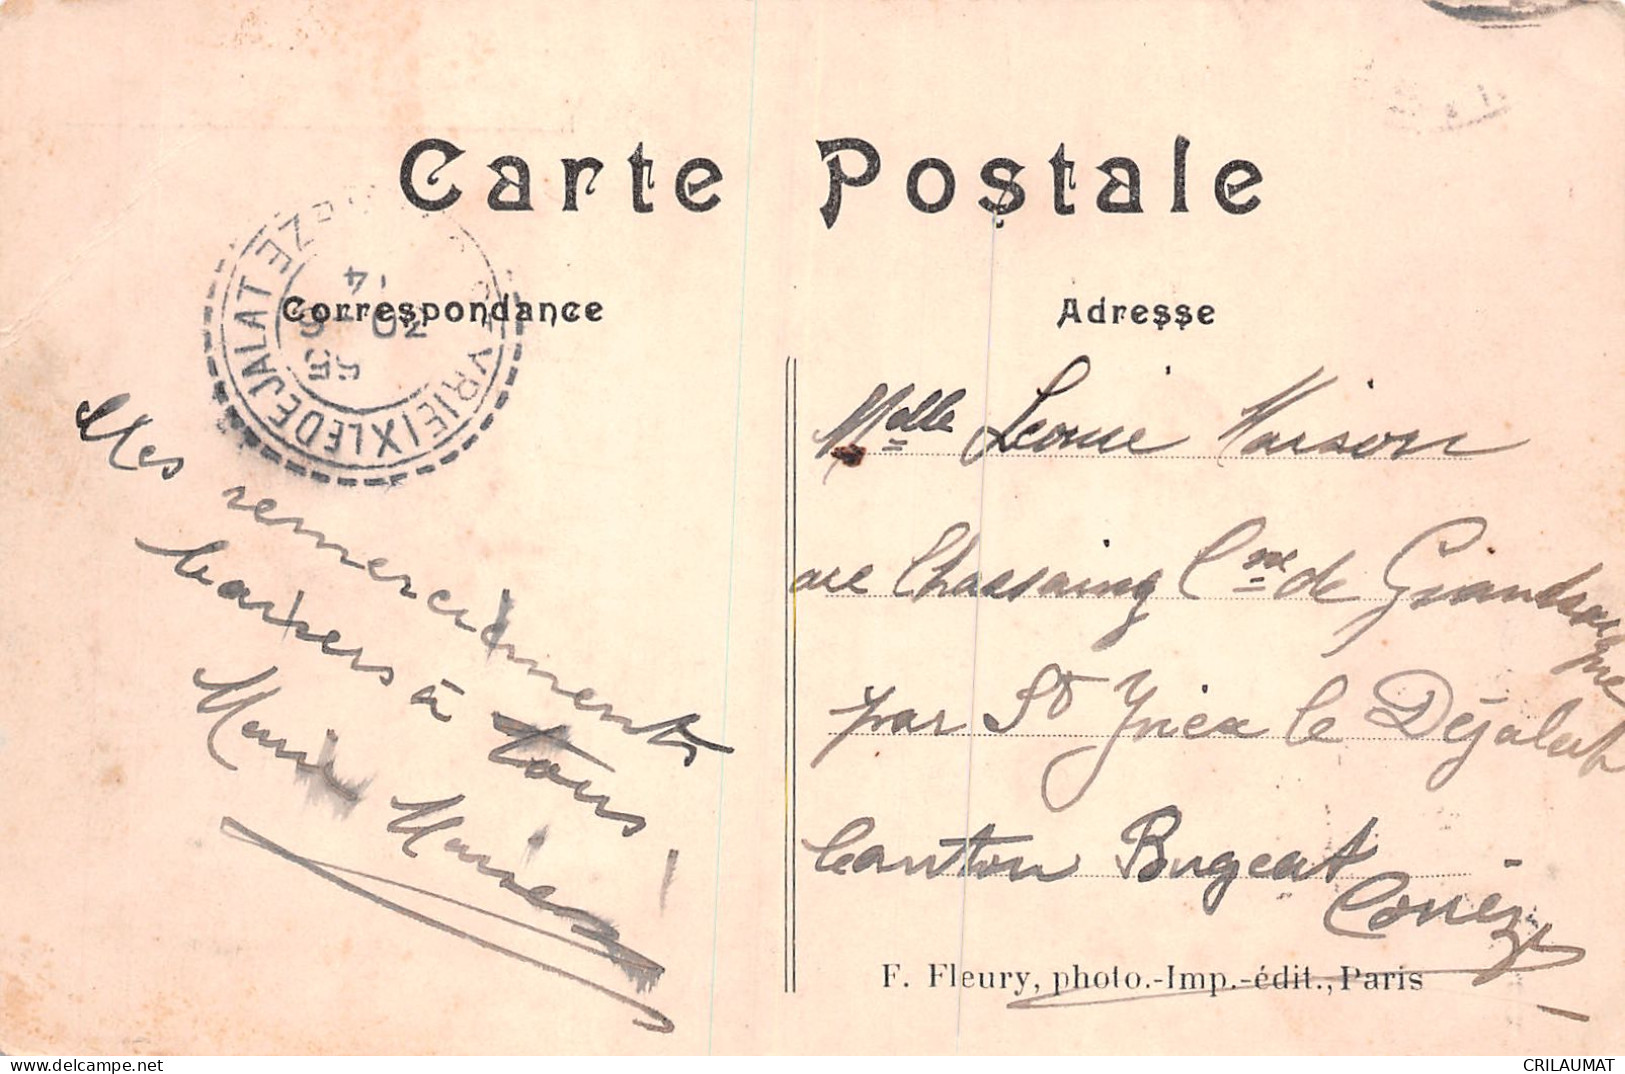 Carte Postale
Correspondance
Adresse
YRIEIX LE DEJALAT
ZE
Mes remerciements
baisers à tous
Marie
Mdlle Leonie Maison
Chassaing Cne de Grandsaigne
par St Yriex le Déjalat
Canton Bugeat
Corrèze
F. Fleury, photo.-Imp.-édit., Paris
www.delcampe.net
CRILAUMAT